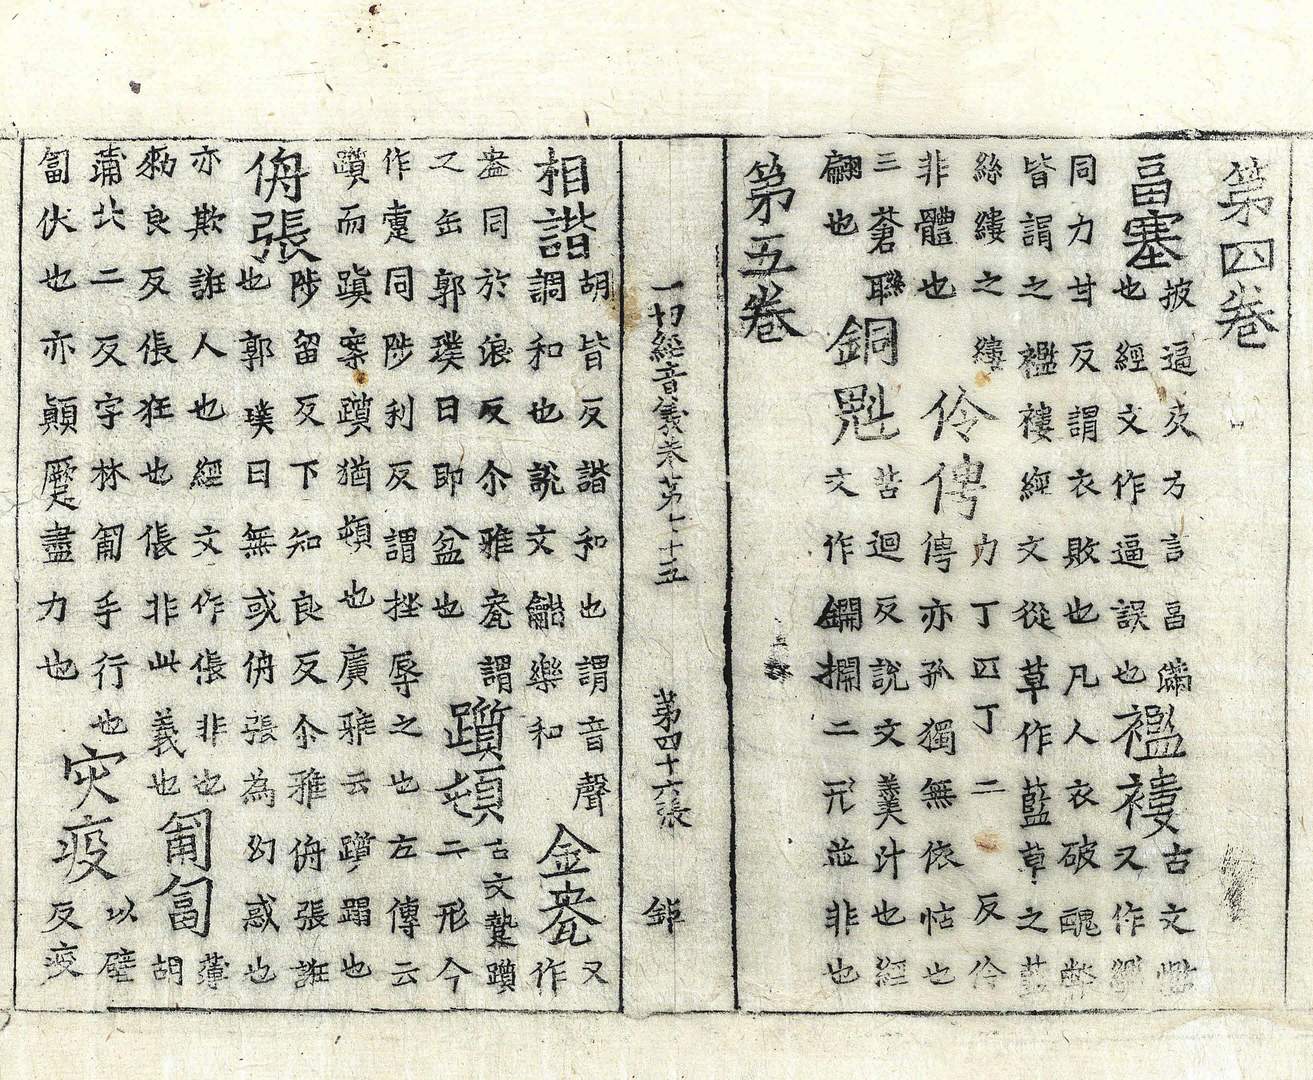 第四卷
畐塞
披逼反方言畐滿
也經文作逼誤也
襤褸
古文
又作
同力甘反謂衣敗也凡人衣破醜弊
皆謂之襤褸經文從草作藍草之藍
絲縷之縷
非體也
伶俜
力丁匹丁二反伶
俜亦孤獨無依怙也
三蒼聯
翩也
銅魁
苦迴反說文羹汁也經
文作鐦㨴二形並非也
第五卷
一切經音義卷第七十五
第四十六張
鉅
相諧
胡皆反諧和也謂音聲
調和也說文龤樂和
金瓮
又
作
盎同於浪反尒雅瓮謂
之缶郭璞曰即盆也
躓頓
古文躓
二形今
作疐同陟利反謂挫辱之也左傳云
躓而蹎案躓猶頓也廣雅云躓蹋也
侜張
陟留反下知良反尒雅侜張誑
也郭璞曰無或侜張為幻惑也
亦欺誑人也經文作倀非也
勑良反倀狂也倀非此義也
匍匐
薄
胡
蒲北二反字林匍手行也
匐伏也亦顛蹷盡力也
灾疫
以壁
反疫